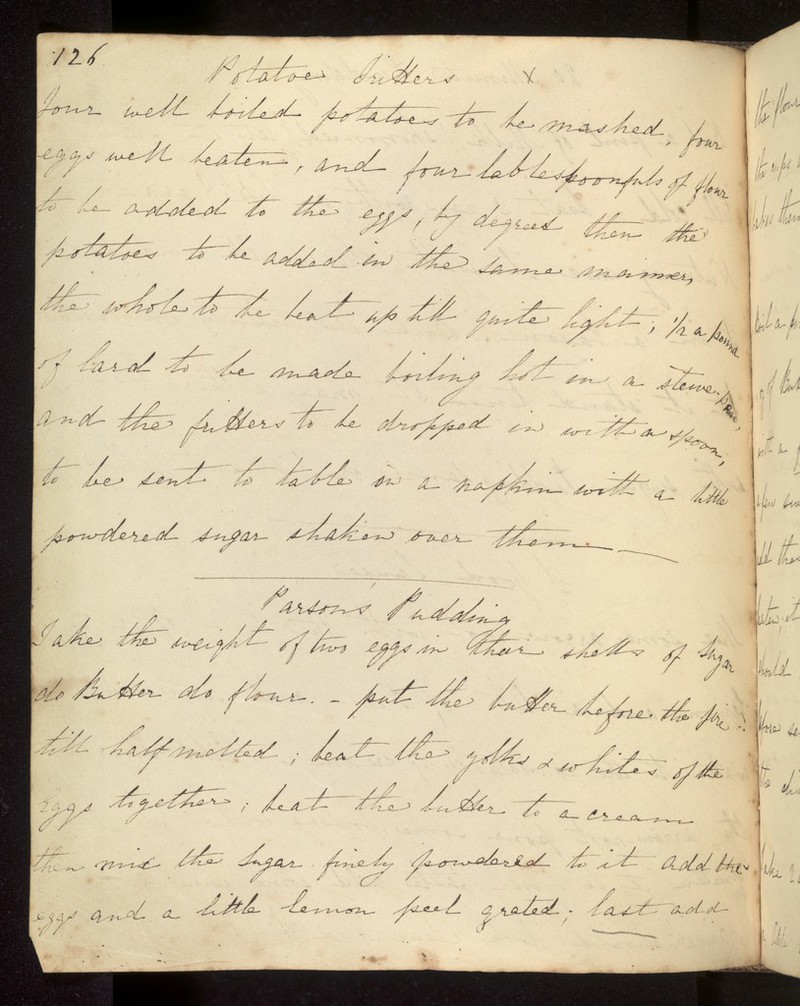 126
Potatoe Fritters X
Four well boiled potatoes to be mashed, four
eggs well beaten, and four tablespoonfuls of flour
to be added to the eggs, by degrees then the
potatoes to be added in the same manner,
the whole to be beat up till quite light; 1/2 a pound
of lard to be made boiling hot in a stewe-pan,
and the fritters to be dropped in with a spoon,
to be sent to table on a napkin with a little
powdered sugar shaken over them —
Parson's Pudding
Take the weight of two eggs in their shells of Sugar
do Butter do flour. - put the butter before the fire
till half melted; beat the yolks & whites of the
eggs together; beat the butter to a cream
then mix the Sugar finely powdered to it add the
eggs and a little lemon peel grated; last add
the flour
the cups